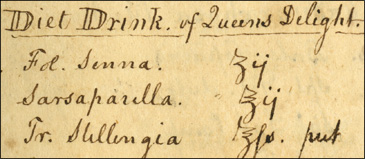 Diet Drink. of Queens Delight.
Fol. Senna. ʒij
Sarsaparella. ʒij
Tr. Stillengia ʒſs. put